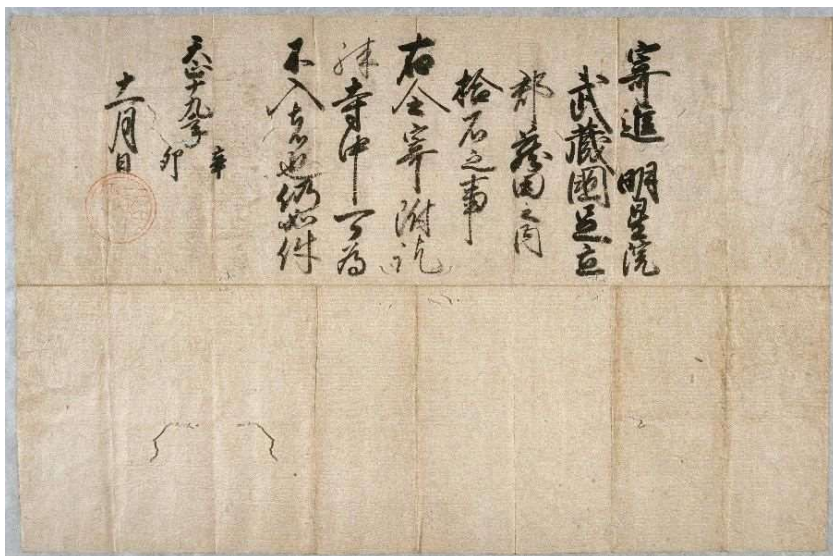 寄進 明星院
武蔵國足立
郡藤田之内
拾石之事
右令寄附訖
殊寺中可為
不入者也仍如件
天正十九年辛卯
十一月日